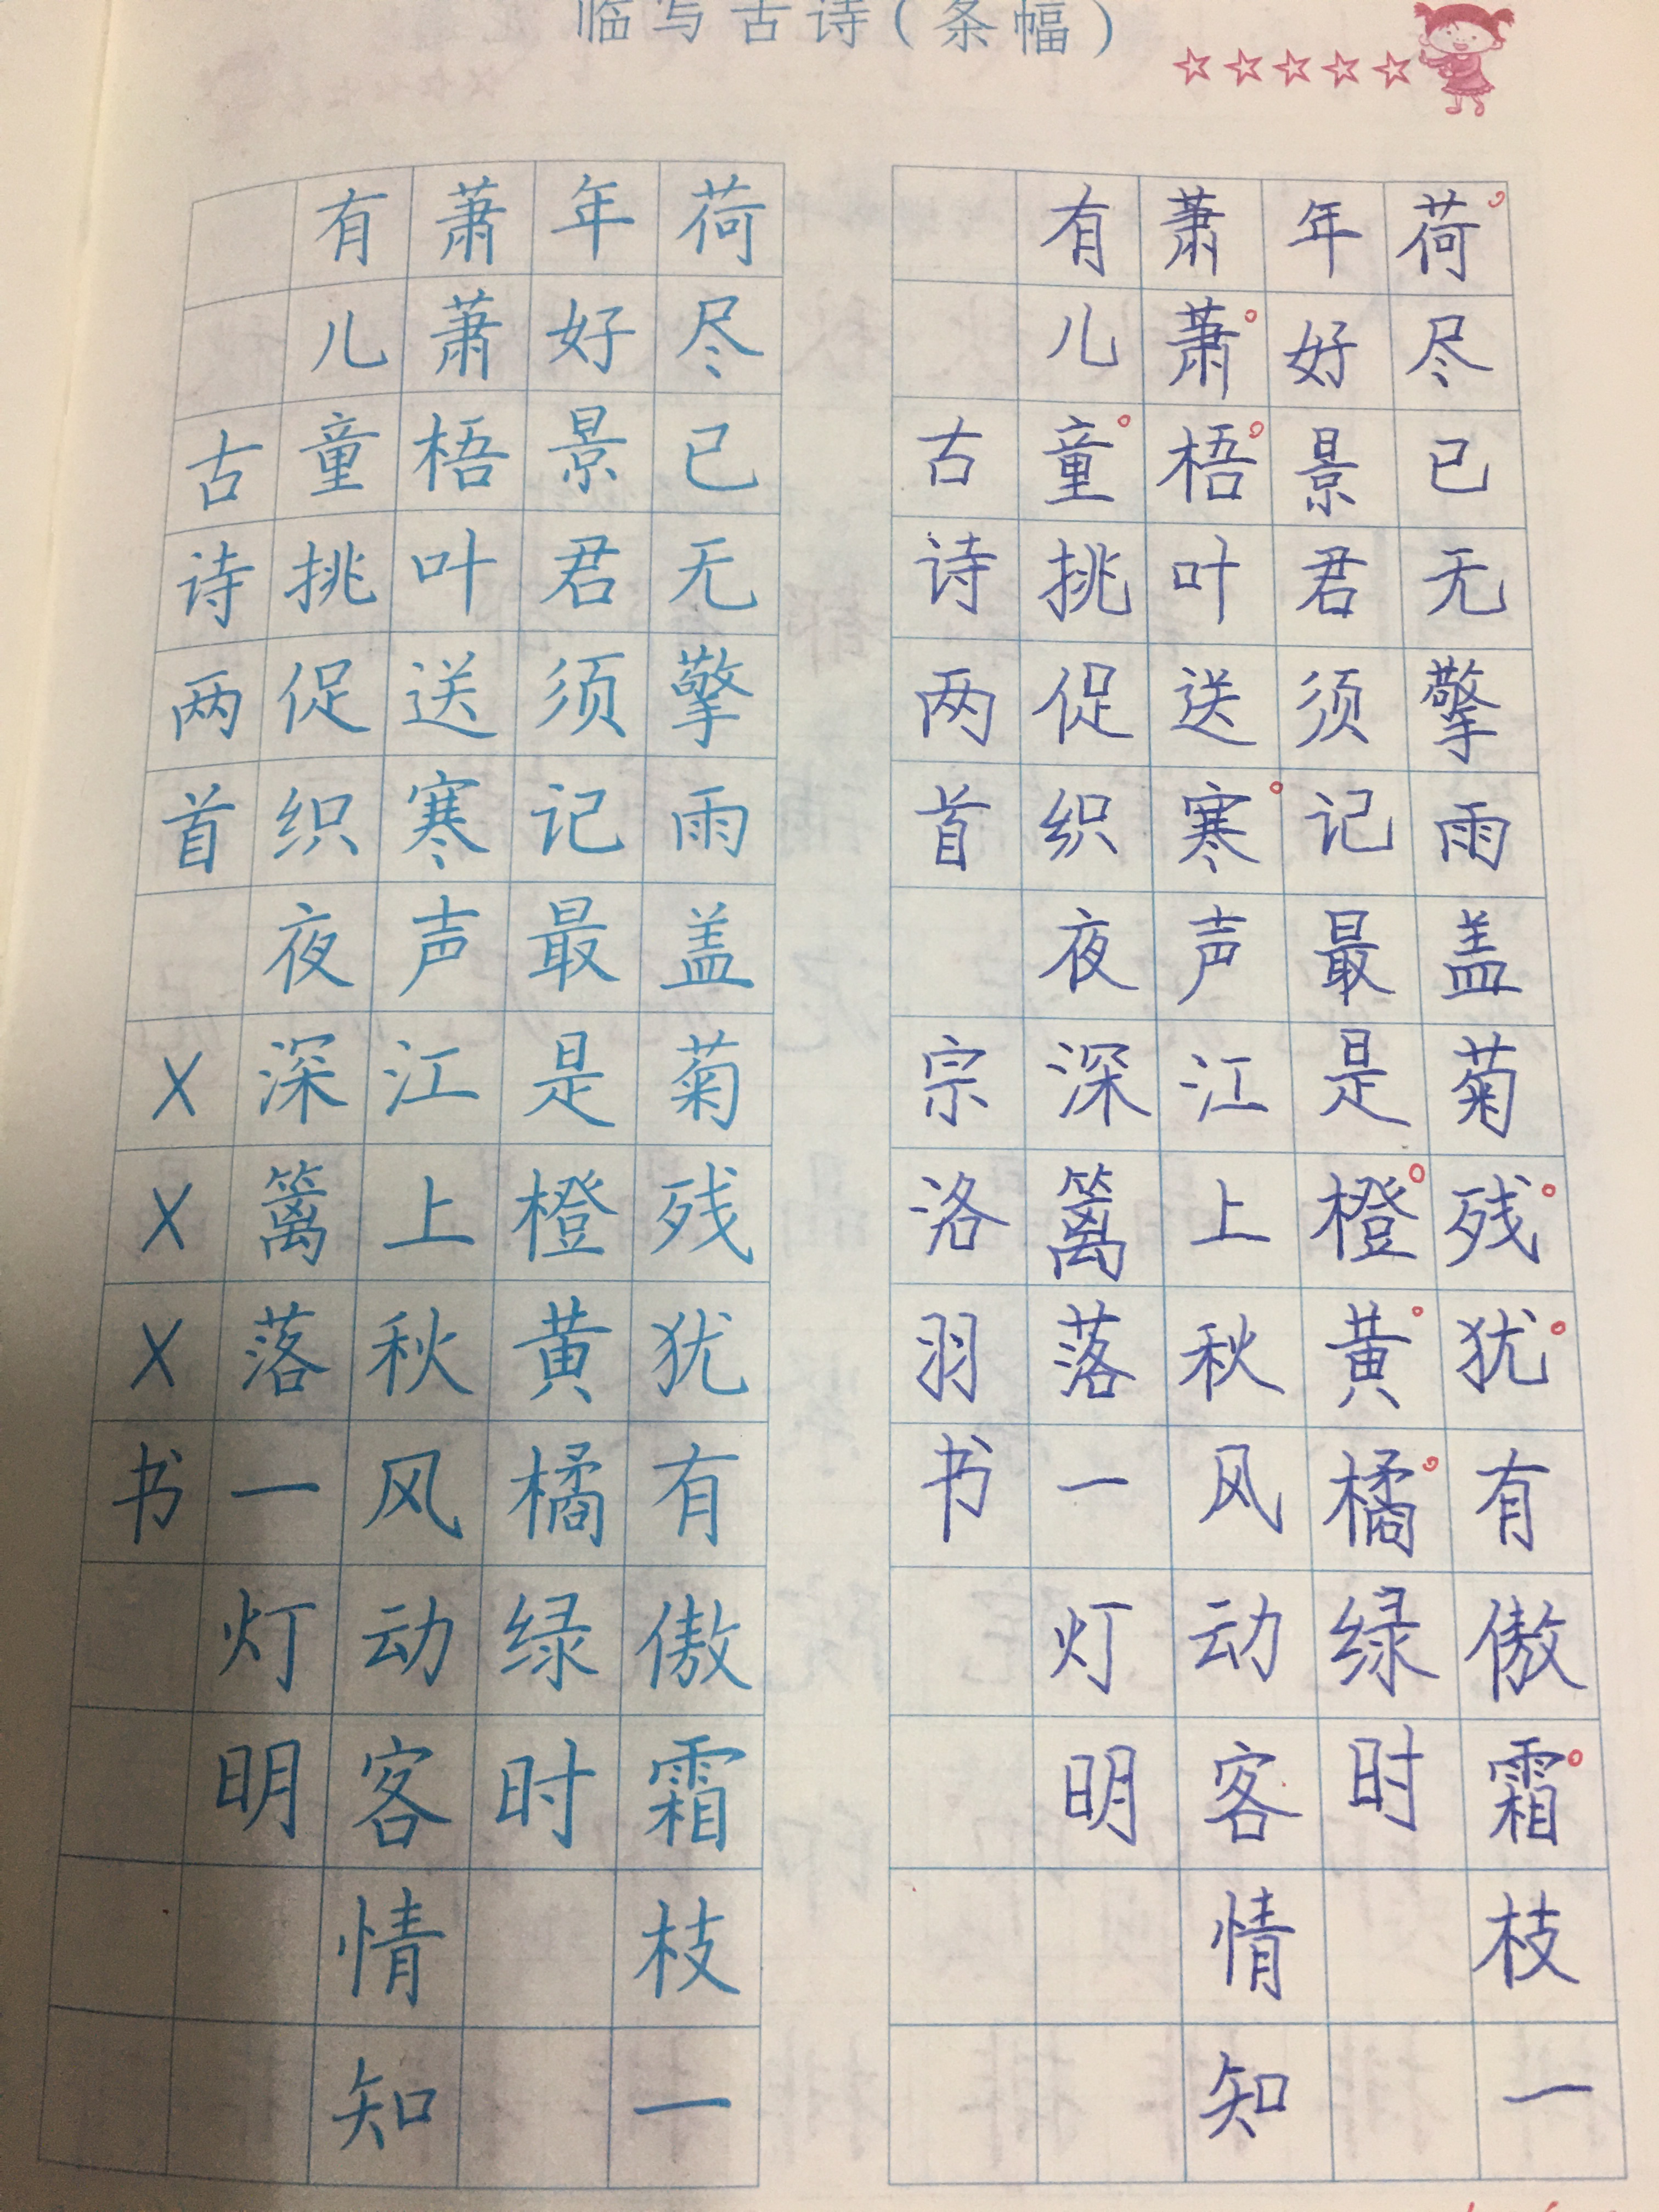 临写古诗(条幅)
荷尽已无擎雨盖菊残犹有傲霜枝一
年好景君须记最是橙黄橘绿时
萧萧梧叶送寒声江上秋风动客情知
有儿童挑促织夜深篱落一灯明
古诗两首 XXX书
荷尽已无擎雨盖菊残犹有傲霜枝一
年好景君须记最是橙黄橘绿时
萧萧梧叶送寒声江上秋风动客情知
有儿童挑促织夜深篱落一灯明
古诗两首 宗洛羽书